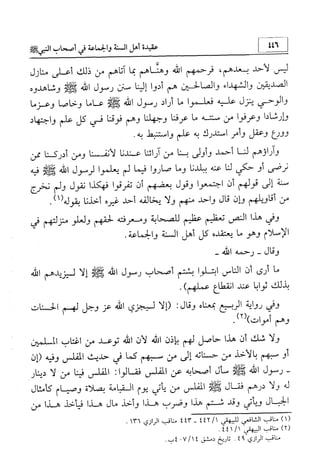 ٤٤٦
عقيدة أهل السنة والجماعة في أصحاب النبي ﷺ
ليس لأحد بعدهم، فرحمهم الله وهنّاهم بما آتاهم من ذلك أعلى منازل
الصديقين والشهداء والصالحين هم أدوا إلينا سنن رسول الله ﷺ وشاهدوه
والوحي ينزل عليه فعلموا ما أراد رسول الله ﷺ عاما وخاصا وعزما
وإرشادا وعرفوا من سنته ما عرفنا وجهلنا وهم فوقنا في كل علم واجتهاد
وورع وعقل وأمر استدرك به علم واستنبط به.
وآراؤهم لنا أحمد وأولى بنا من آرائنا عندنا لأنفسنا ومن أدركنا ممن
نرضى أو حكي لنا عنه ببلدنا وما صاروا فيما لم يعلموا لرسول الله ﷺ فيه
سنة إلى قولهم أن اجتمعوا وقول بعضهم أن تفرقوا فهكذا نقول ولم نخرج
من أقاويلهم وإن قال واحد منهم ولا يخالفه أحد غيره أخذنا بقوله(١).
وفي هذا النص تعظيم عظيم للصحابة ومعرفته لحقهم ولعلو منزلتهم في
الإسلام وهو ما يعتقده كل أهل السنة والجماعة.
وقال - رحمه الله -
ما أرى أن الناس ابتلوا بشتم أصحاب رسول الله ﷺ إلا ليزيدهم الله
بذلك ثوابا عند انقطاع عملهم).
وفي رواية الربيع بمعناه وقال: (إلا ليجزي الله عز وجل لهم الحسنات
وهم أموات)(٢).
ولا شك أن هذا حاصل لهم بإذن الله لأن الله توعد من اغتاب المسلمين
أو سبهم بالأخذ من حسناته إلى من سبهم كما في حديث المفلس وفيه (إن
- رسول الله ﷺ سأل أصحابه عن المفلس فقالوا: المفلس فينا من لا دينار
له ولا درهم فقال ﷺ المفلس من يأتي يوم القيامة بصلاة وصيام كأمثال
الجبال ويأتي وقد شتم هذا وضرب هذا وأخذ مال هذا فيأخذ هذا من
(١) مناقب الشافعي للبيهقي ٤٤٢/١ - ٤٤٣ مناقب الرازي ١٣٦.
(٢) مناقب البيهقي ٤٤١/١.
مناقب الرازي ٤٩. تاريخ دمشق ٤٠٧/١٤ب.